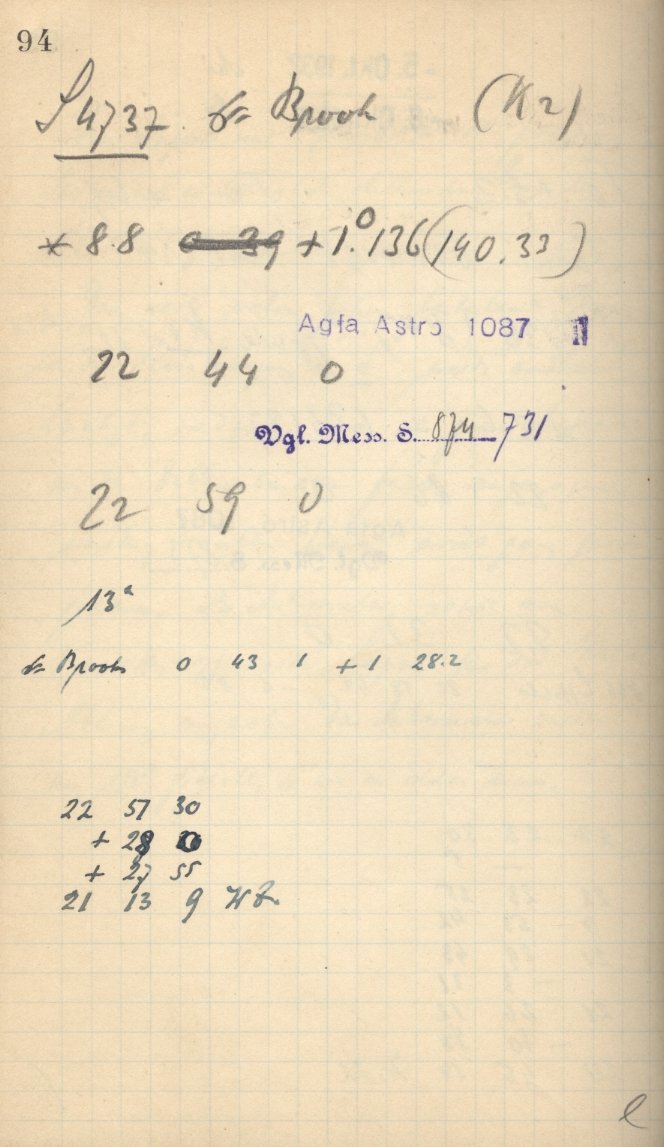 94
S 4737 Brook (K2)
* 8.8 0 39 + 1.°136 (140.33)
Agfa Astro 1087
22 44 0
Vgl. Mess. S. 874 731
22 59 0
13ᵃ
Brook 0 43 1 + 1 28.2
22 57 30
+ 28
+ 27 55
21 13 9